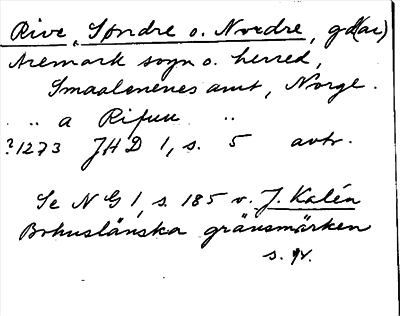 Rive, Søndre o. Nordre, gd(ar)
Aremark sogn o. herred,
Smaalenenes amt, Norge.
.. a Rifuu ..
?1273 JHD 1, s. 5 avtr.
Se NG 1, s. 185 o. J. Kalén
Bohuslänska gränsmärken
s.